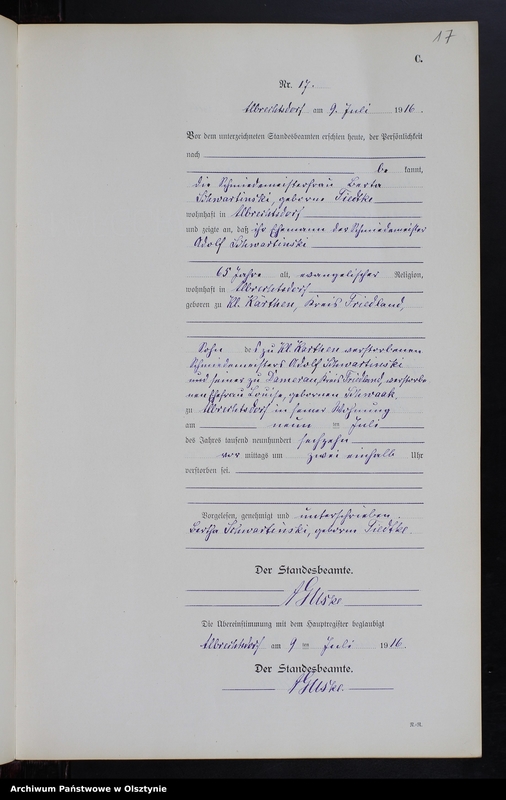 17
C.
Nr. 17.
Albrechtsdorf am 9. Juli 1916.
Vor dem unterzeichneten Standesbeamten erschien heute, der Persönlichkeit
nach
be kannt,
die Schmiedemeisterfrau Berta
Schwartinski, geborne Tiedtke
wohnhaft in Albrechtsdorf
und zeigte an, daß ihr Ehemann der Schmiedemeister
Adolf Schwartinski
65 Jahre alt, evangelischer Religion,
wohnhaft in Albrechtsdorf
geboren zu Kl. Kärthen, Kreis Friedland,
Sohn des zu Kl. Kärthen verstorbenen
Schmiedemeisters Adolf Schwartinski
und seiner zu Damerau Kreis Friedland, verstorbe
nen Ehefrau Louise, gebornen Schwaak,
zu Albrechtsdorf in seiner Wohnung
am neun ten Juli
des Jahres tausend neunhundert sechzehn
vor mittags um zwei einhalb Uhr
verstorben sei.
Vorgelesen, genehmigt und unterschrieben.
Bertha Schwartinski, geborne Tiedtke.
Der Standesbeamte.
Die Übereinstimmung mit dem Hauptregister beglaubigt
Albrechtsdorf am 9 ten Juli 1916.
Der Standesbeamte.
Archiwum Państwowe w Olsztynie